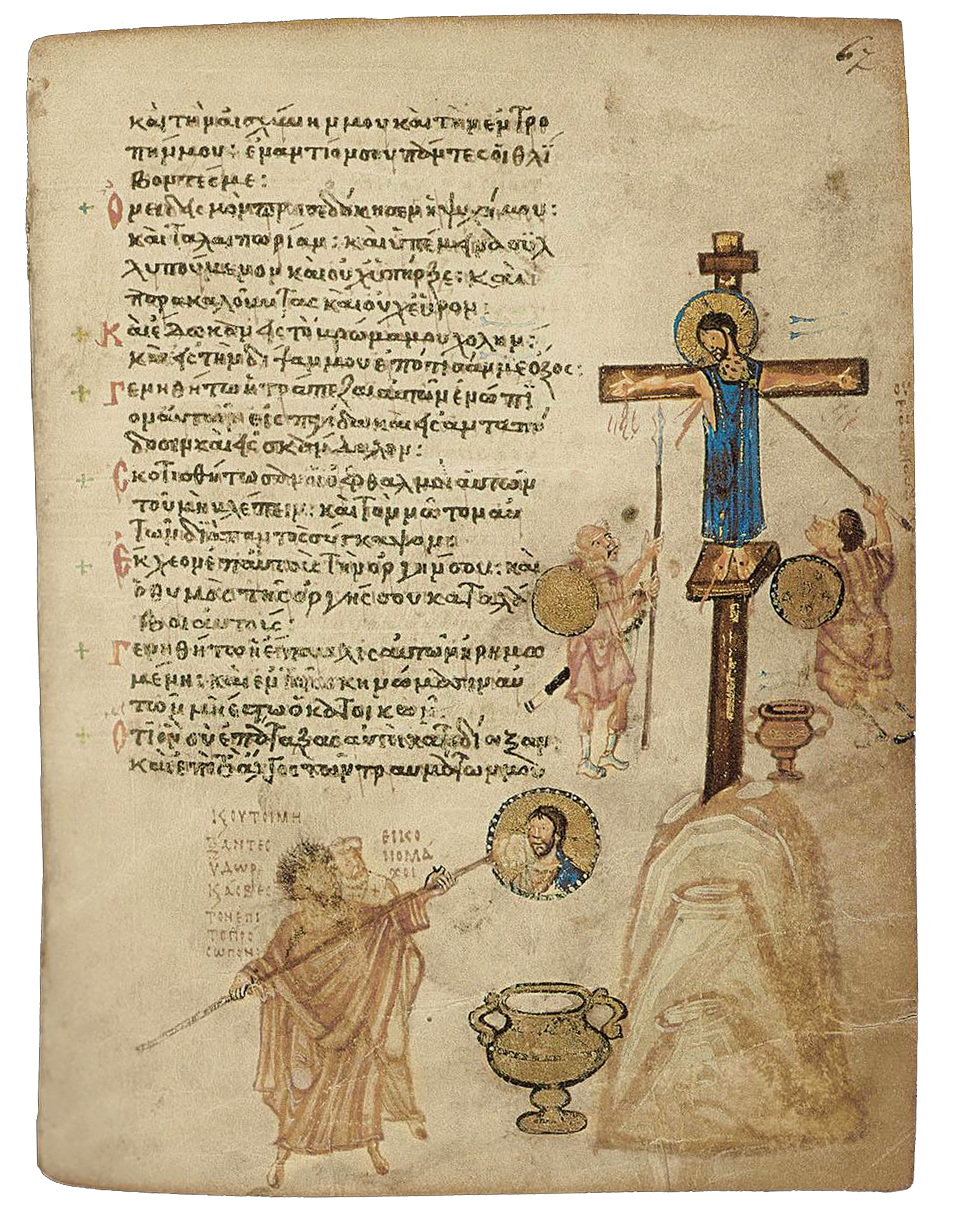 67
καὶ τὴν αἰσχύνην μου καὶ τὴν ἐντρο
πήν μου: ἐναντίον σου πάντες οἱ θλί
βοντές με:
Ὀνειδισμὸν προσεδόκησεν ἡ ψυχή μου:
καὶ ταλαιπωρίαν: καὶ ὑπέμεινα συλ
λυπούμενον καὶ οὐχ ὑπῆρξε: καὶ
παρακαλοῦντας καὶ οὐχ εὗρον:
Καὶ ἔδωκαν εἰς τὸ βρῶμά μου χολήν:
καὶ εἰς τὴν δίψαν μου ἐπότισάν με ὄξος:
Γενηθήτω ἡ τράπεζα αὐτῶν ἐνώπι
ον αὐτῶν εἰς παγίδα καὶ εἰς ἀνταπό
δοσιν καὶ εἰς σκάνδαλον:
Σκοτισθήτωσαν οἱ ὀφθαλμοὶ αὐτῶν
τοῦ μὴ βλέπειν: καὶ τὸν νῶτον αὐ
τῶν διὰ παντὸς σύγκαμψον:
Ἔκχεον ἐπ αὐτοὺς τὴν ὀργήν σου: καὶ
ὁ θυμὸς τῆς ὀργῆς σου καταλά
βοι αὐτούς:
Γενηθήτω ἡ ἔπαυλις αὐτῶν ἠρημω
μένη: καὶ ἐν τοῖς σκηνώμασιν αὐ
τῶν μὴ ἔστω ὁ κατοικῶν:
Ὅτι ὃν σὺ ἐπάταξας αὐτοὶ κατεδίωξαν:
καὶ ἐπὶ τὸ ἄλγος τῶν τραυμάτων μου
Κ ΟΥΤΟΙ ΜΗ
ΞΑΝΤΕΣ
ΥΔΩΡ
Κ ΑΣΒΕΣ
ΤΟΝ ΕΠΙ
ΤΟ ΠΡΟ
ΣΩΠΟΝ
ΕΙΚΟ
ΝΟΜΑ
ΧΟΙ